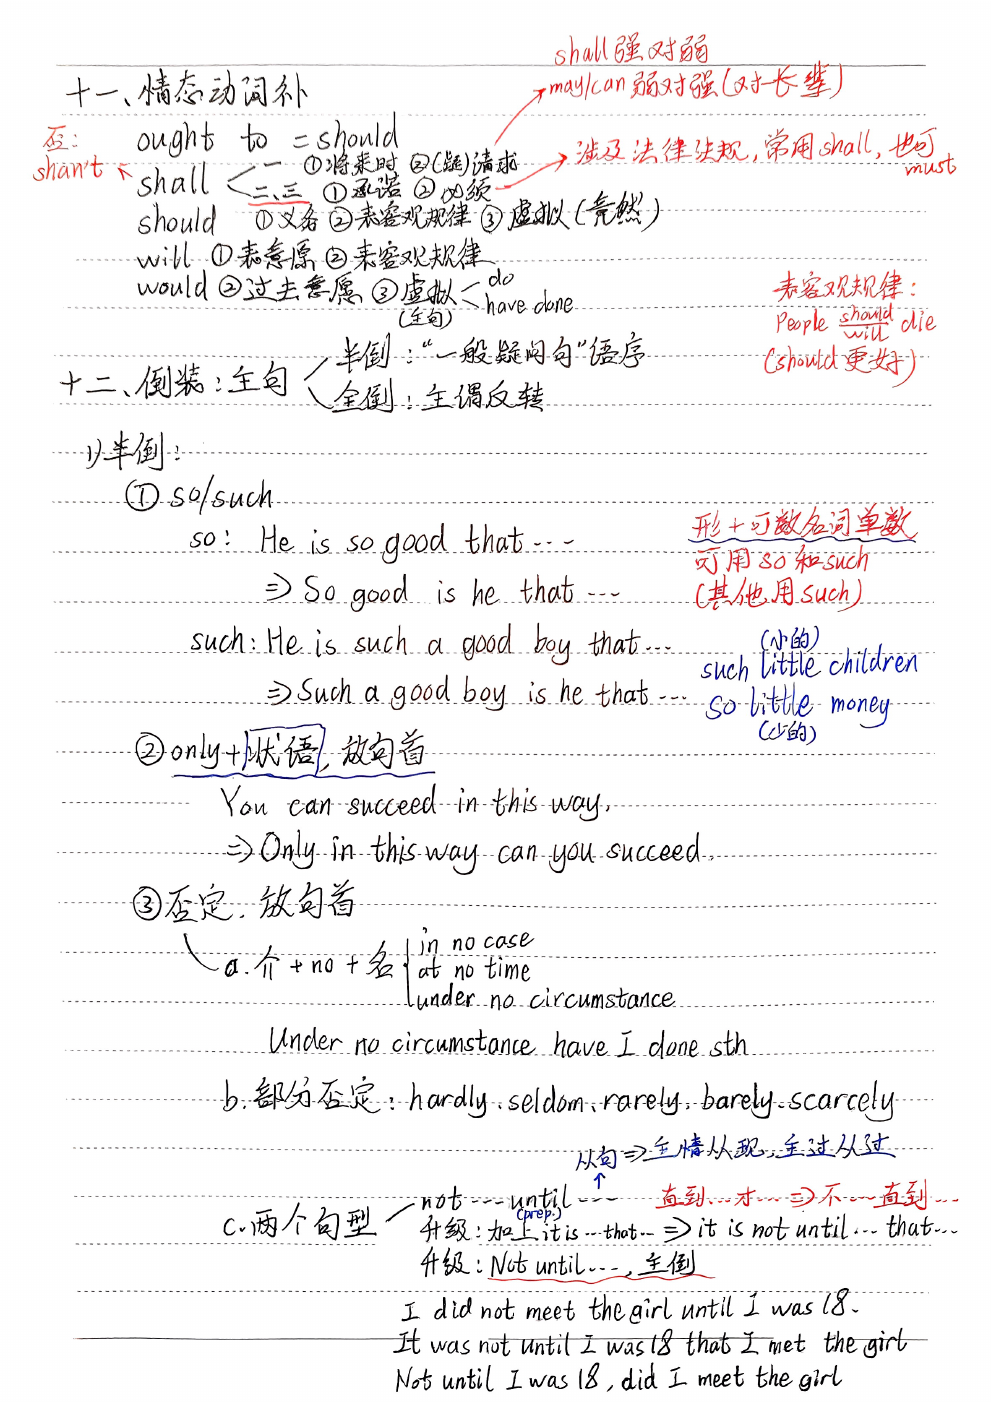 shall强对弱
十一、情态动词补
may/can弱对强(对长辈)
ought to = should
否:
shan't
shall
一 ①将来时 ②(疑)请求
二、三 ①承诺 ②必须
涉及法律法规,常用shall,也可must
should ①义务 ②表客观规律 ③虚拟(竟然)
will ①表意愿 ②表客观规律
would ②过去意愿 ③虚拟(主句) do
have done
表客观规律:
People should/will die
(should更好)
十二、倒装:主句
半倒:“一般疑问句”语序
全倒:主谓反转
1)半倒:
① so/such
so: He is so good that ···
⇒ So good is he that ···
形+可数名词单数
可用so和such
(其他用such)
such: He is such a good boy that ···
⇒ Such a good boy is he that ···
(小的)
such little children
so little money
(少的)
② only+状语,放句首
You can succeed in this way.
⇒ Only in this way can you succeed.
③否定,放句首
a. 介+no+名
in no case
at no time
under no circumstance
Under no circumstance have I done sth
b. 部分否定:hardly、seldom、rarely、barely、scarcely
从句⇒主情从现,主过从过
c. 两个句型
not ··· until ··· 直到…才…⇒不…直到…
(prep.)
升级:加上it is … that … ⇒ it is not until … that …
升级:Not until …,主倒
I did not meet the girl until I was 18.
It was not until I was 18 that I met the girl
Not until I was 18, did I meet the girl